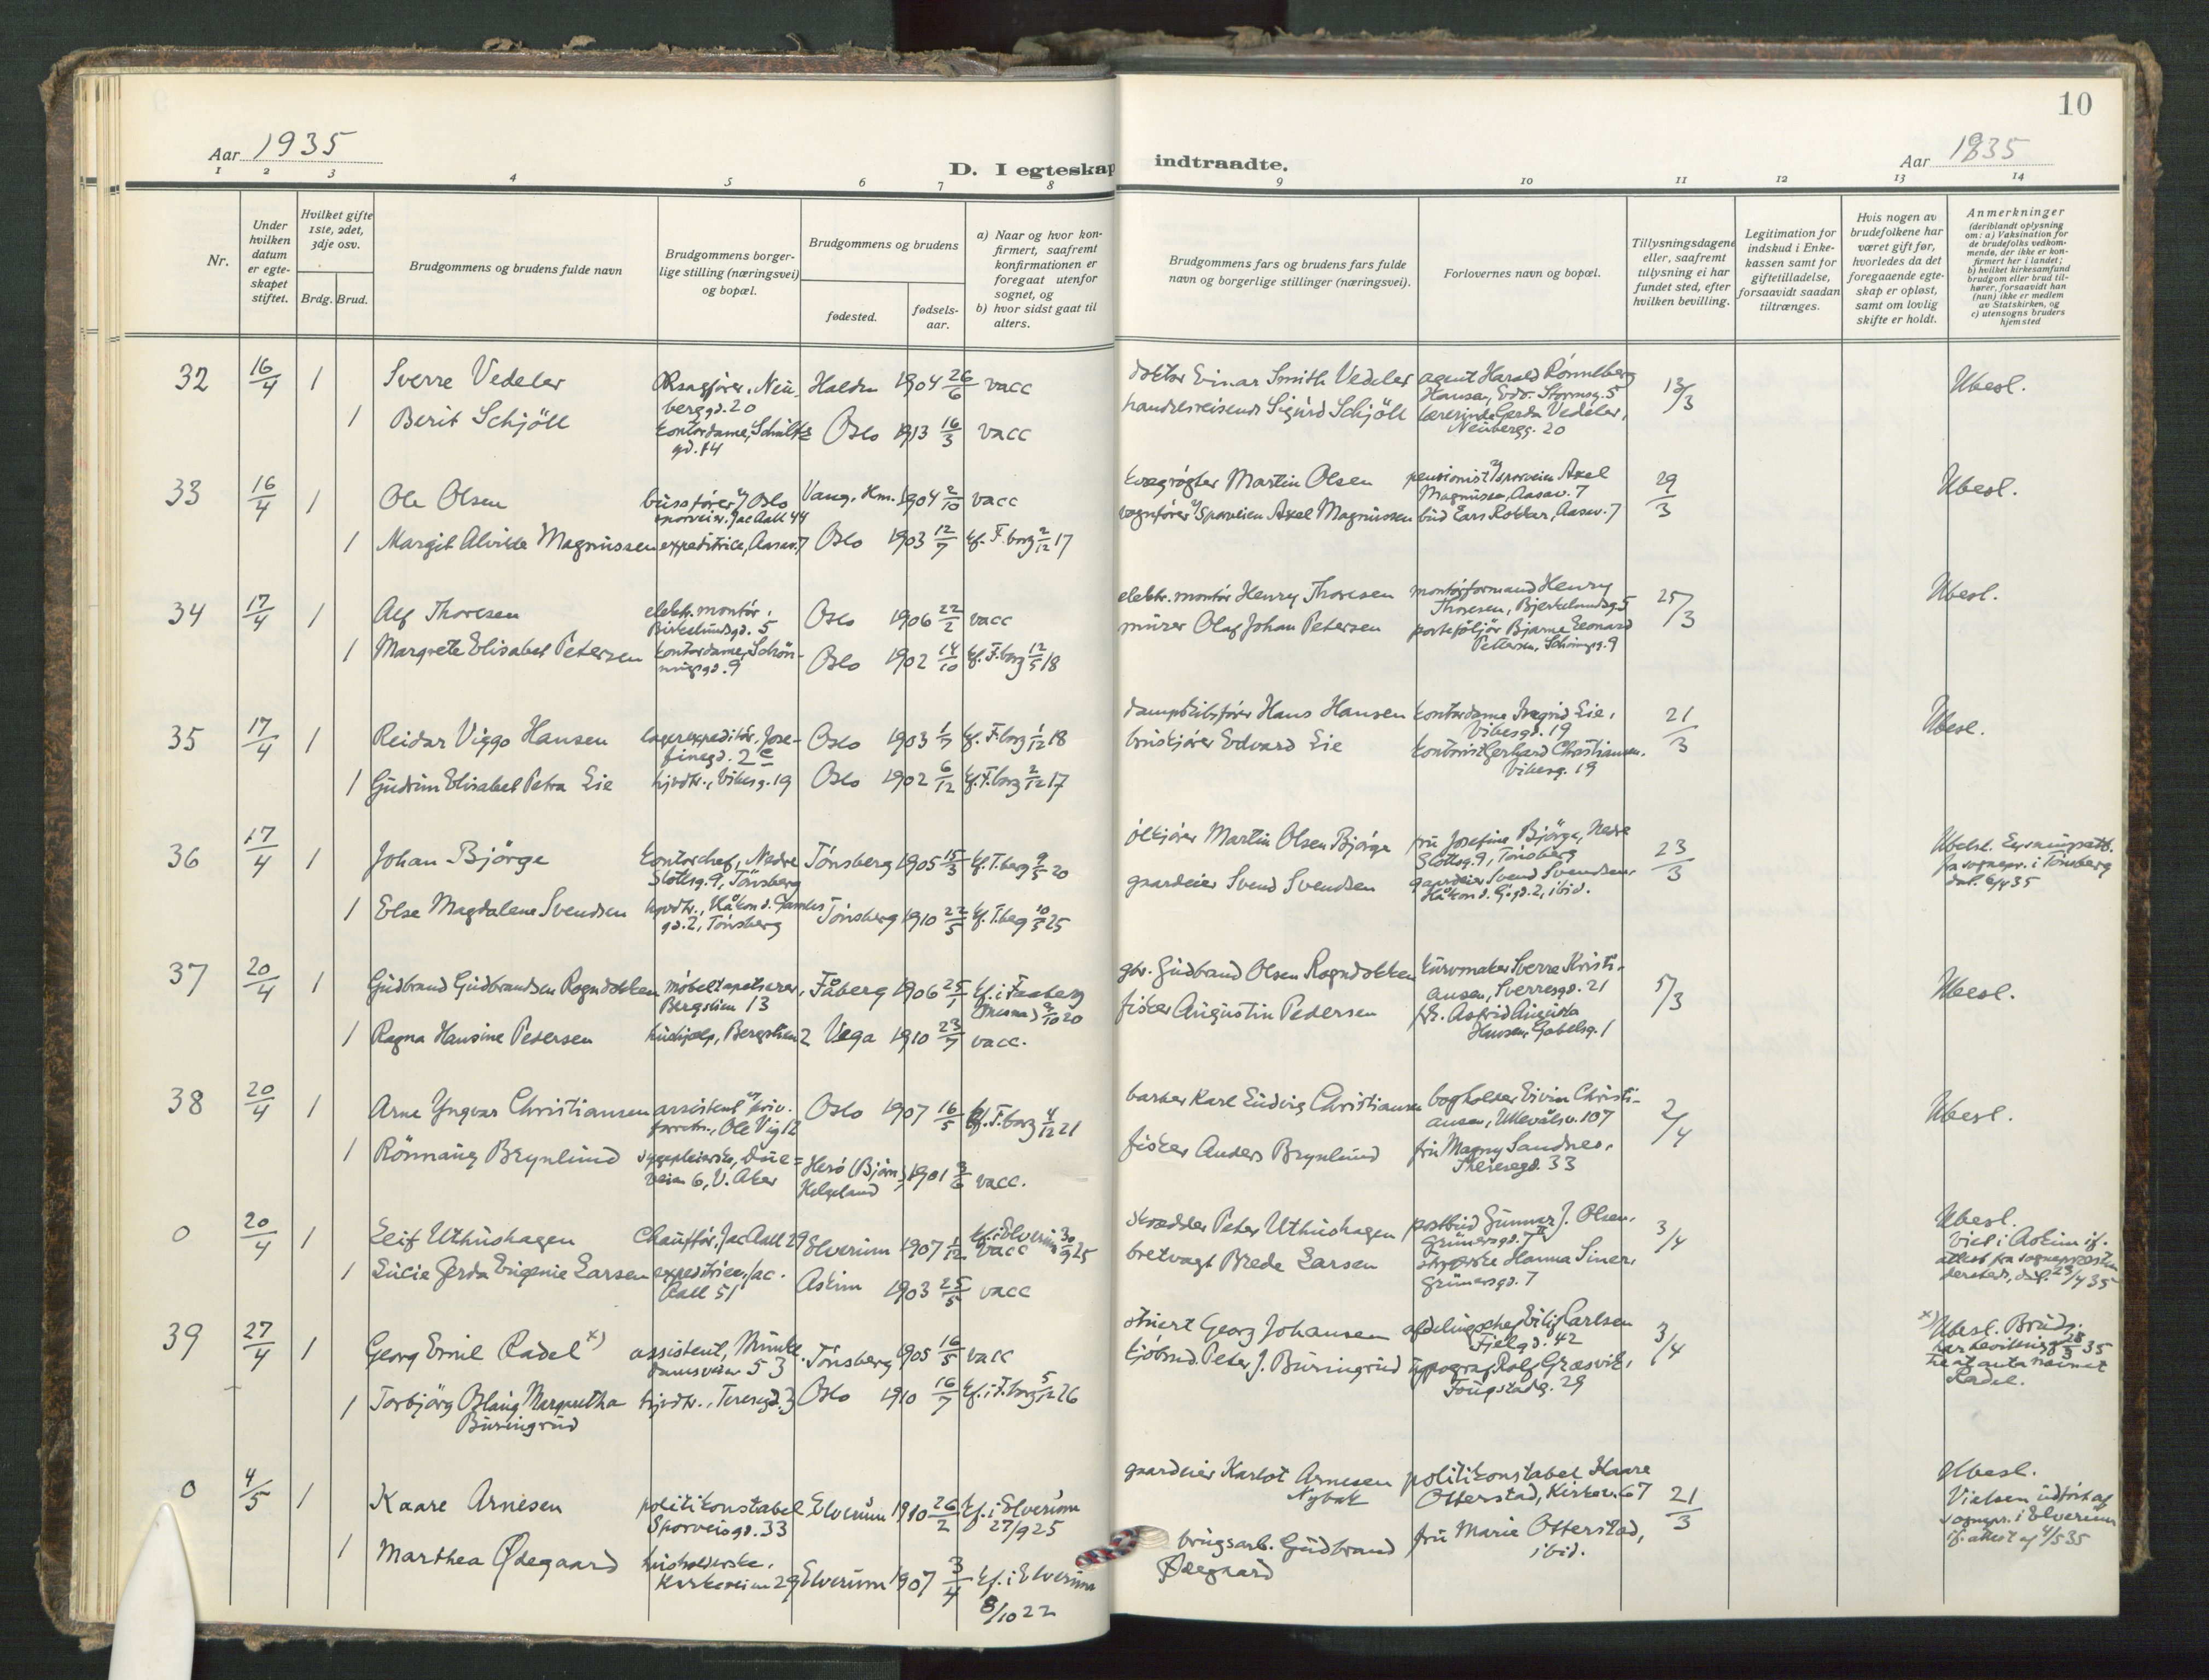 10
Aar 1935
D. I egteskap indtraadte.
Aar 1935
1 2 3 4 5 6 7 8 9 10 11 12 13 14
Nr.
Under hvilken datum er egte-skapet stiftet.
Hvilket gifte 1ste, 2det, 3dje osv.
Brdg. Brud.
Brudgommens og brudens fulde navn
Brudgommens borger-lige stilling (næringsvei) og bopæl.
Brudgommens og brudens
fødested.
fødsels-aar.
a) Naar og hvor kon-firmert, saafremt konfirmationen er foregaat utenfor sognet, og
b) hvor sidst gaat til alters.
Brudgommens fars og brudens fars fulde navn og borgerlige stillinger (næringsvei).
Forlovernes navn og bopæl.
Tillysningsdagene eller, saafremt tillysning ei har fundet sted, efter hvilken bevilling.
Legitimation for indskud i Enke-kassen samt for giftetilladelse, forsaavidt saadan tiltrænges.
Hvis nogen av brudefolkene har været gift før, hvorledes da det foregaaende egte-skap er opløst, samt om lovlig skifte er holdt.
Anmerkninger (deriblandt oplysning om: a) Vaksination for de brudefolks vedkom-mende, der ikke er kon-firmert her i landet; b) hvilket kirkesamfund brudgom eller brud til-hører, forsaavidt han (hun) ikke er medlem av Statskirken, og c) utensogns bruders hjemsted
32 16/4 1 Sverre Vedeler ORsagfører, Neu-berggd. 20 Halden 1904 26/6 vacc doktor Einar Smith Vedeler agent Harald Rønneberg Hansen, Edv. Stormsg. 5 13/3 Ubesl.
1 Berit Schjöll kontordame, Schultz gd. 14 Oslo 1913 16/3 vacc handelsreisende Sigurd Schjöll lærerinde Gerda Vedeler, Neubergg. 20
33 16/4 1 Ole Olsen bussfører v/ Oslo sporveier, Jac Aall 44 Vang. Hm. 1904 2/10 vacc kvægrøgter Martin Olsen pensionist v/ sporveien Axel Magnussen, Aasav. 7 29/3 Ubesl.
1 Margit Alvilde Magnussen expeditrice, Aasav. 7 Oslo 1903 12/7 kf. F.borg 2/12 17 vognfører v/ Sporveien Axel Magnussen bud Lars Rokkar, Aasav. 7
34 17/4 1 Alf Thoresen elektr. montør, Birkelundsgd. 5 Oslo 1906 22/2 vacc elektr. montør Henry Thoresen montørformand Henry Thoresen, Bjerkelundsg. 5 25/3 Ubesl.
1 Margrete Elisabet Petersen kontordame, Schön-ningsgd. 9 Oslo 1902 14/10 kf. F.borg 12/5 18 murer Olaf Johan Petersen porteføljør Bjarne Leonard Pettersen, Schöningsg. 9
35 17/4 1 Reidar Viggo Hansen lagerexpeditør, Jose-finegd. 2c Oslo 1903 1/7 kf. F.borg 1/12 18 Hans Hansen kontordame Ingrid Lie, Vibesgd. 19 21/3 Ubesl.
1 Gudrun Elisabet Petra Lie hjvdtr., Vibesg. 19 Oslo 1902 6/12 kf. F.borg 2/12 17 Edvard Lie kontorist Gerhard Christiansen, Vibesg. 19
36 17/4 1 Johan Bjørge kontorchef, Nedre Slottsg. 9, Tönsberg Tönsberg 1905 15/3 kf. T.berg 9/5 20 ølkjører Martin Olsen Bjørge fru Josefine Bjørge, Nedre Slottsg. 9, Tönsberg 23/3 Ubesl. fra sognepr. i Tönsberg dat. 6/4 35
1 Else Magdalene Svendsen hjvdtr., Håkon d. Gamles gd. 2, Tönsberg Tönsberg 1910 22/5 kf. T.berg 10/5 25 gaardeier Svend Svendsen gaardeier Svend Svendsen, Håkon d. G. gd. 2, ibid.
37 20/4 1 Gudbrand Gudbrandsen Rogndokken møbeltapetserer, Bergslien 13 Fåberg 1906 25/1 kf. i Faaberg 9/10 20 gbr. Gudbrand Olsen Rogndokken kurvmaker Sverre Kristi-ansen, Sverresgd. 21 5/3 Ubesl.
1 Ragna Hansine Pedersen hushjælp, Bergslien 2 Vega 1910 23/7 vacc. fisker Augustin Pedersen frk. Astrid Augusta Hansen, Gabelsg. 1
38 20/4 1 Arne Yngvar Christiansen assistent v/ priv. forretn., Ole Vig 12 Oslo 1907 16/5 kf. F.borg 4/12 21 barber Karl Ludvig Christiansen bogholder Eivin Christi-ansen, Ullevålsv. 107 2/4 Ubesl.
1 Rönnaug Brynlund sygepleierske, Due-veien 6, V. Aker Herø (Bjørn) Helgeland 1901 3/6 vacc. fisker Anders Brynlund fru Magny Sandnes, Theresegd. 33
0 20/4 1 Leif Uthushagen Chauffør, Jac Aall 29 Elverum 1907 1/12 kf. i Elverum 30/9 25 vacc skrædder Peter Uthushagen postbud Gunnar J. Olsen, Grünersgd. 7 3/4 Ubesl. Viet i Askim if. attest fra sognepresten dersteds, dat. 23/4 35
1 Lucie Gerda Eugenie Larsen expeditrice, Jac. Aall 51 Askim 1903 25/5 vacc bretvagt Brede Larsen strykerske Hanna Siner, Grünersgd. 7
39 27/4 1 Georg Emil Radel x) assistent, Munke-damsveien 53 Tönsberg 1905 16/5 vacc stuert Georg Johansen afdelingschef Erling Karlsen Fjelgd. 42 3/4 x) Ubesl. Brudg. har bevilling 28/3 35 til at anta navnet Radel.
1 Torbjörg Aslaug Margaretha Buringrud hjvdtr., Teresegd. 3 Oslo 1910 16/7 kf. i F.borg 5/12 26 kjøbmd. Peter J. Buringrud typograf Rolf Græsvik, Fougstadg. 29
0 4/5 1 Kaare Arnesen politikonstabel Sporveisgd. 33 Elverum 1910 26/2 kf. i Elverum 27/9 25 gaardeier Karlot Arnesen Nybak politikonstabel Kaare Otterstad, Kirkev. 67 21/3 Ubesl. Vielsen udført af sognepr. i Elverum if. attest af 4/5 35
1 Marthea Ødegaard husholderske, Kirkeveien 29 Elverum 1907 3/4 kf. i Elverum 8/10 22 brugsarb. Gudbrand Ødegaard fru Marie Otterstad, ibid.